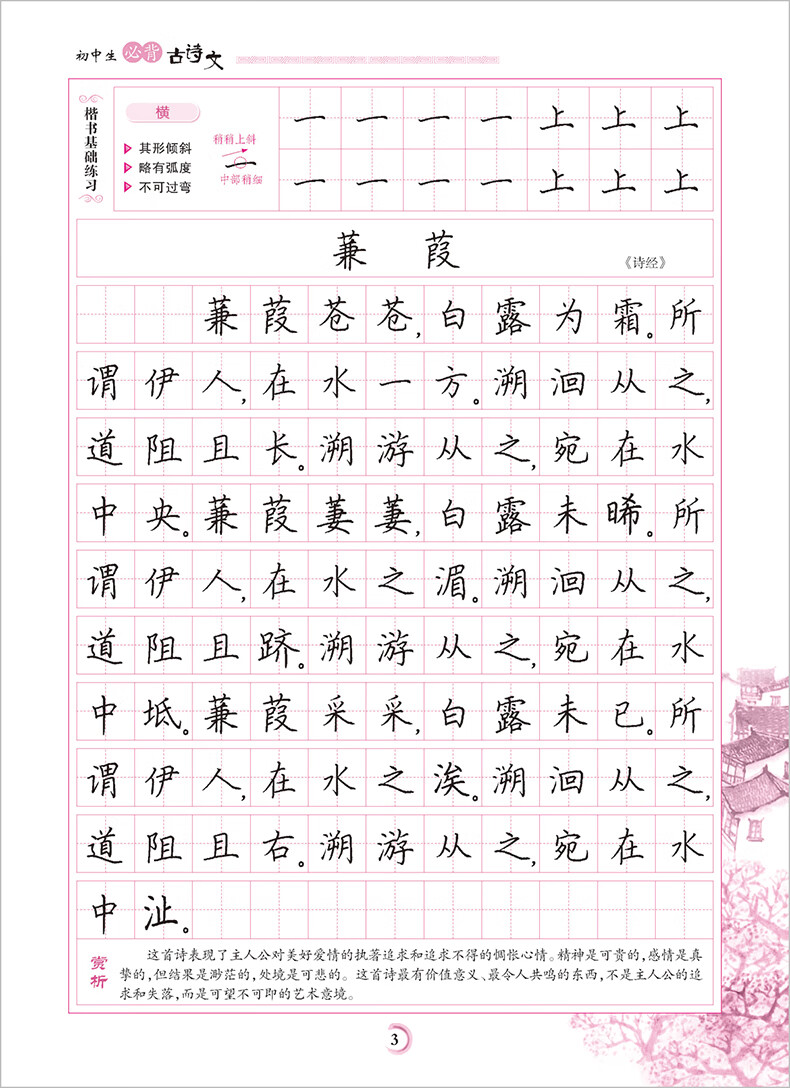 初中生必背古诗文
楷书基础练习
横
其形倾斜
略有弧度
不可过弯
稍稍上斜
一
中部稍细
一 一 一 一 上 上 上
一 一 一 一 上 上 上
蒹 葭
《诗经》
蒹葭苍苍,白露为霜。所
谓伊人,在水一方。溯洄从之,
道阻且长。溯游从之,宛在水
中央。蒹葭萋萋,白露未晞。所
谓伊人,在水之湄。溯洄从之,
道阻且跻。溯游从之,宛在水
中坻。蒹葭采采,白露未已。所
谓伊人,在水之涘。溯洄从之,
道阻且右。溯游从之,宛在水
中沚。
赏析
这首诗表现了主人公对美好爱情的执著追求和追求不得的惆怅心情。精神是可贵的,感情是真
挚的,但结果是渺茫的,处境是可悲的。这首诗最有价值意义、最令人共鸣的东西,不是主人公的追
求和失落,而是可望不可即的艺术意境。
3